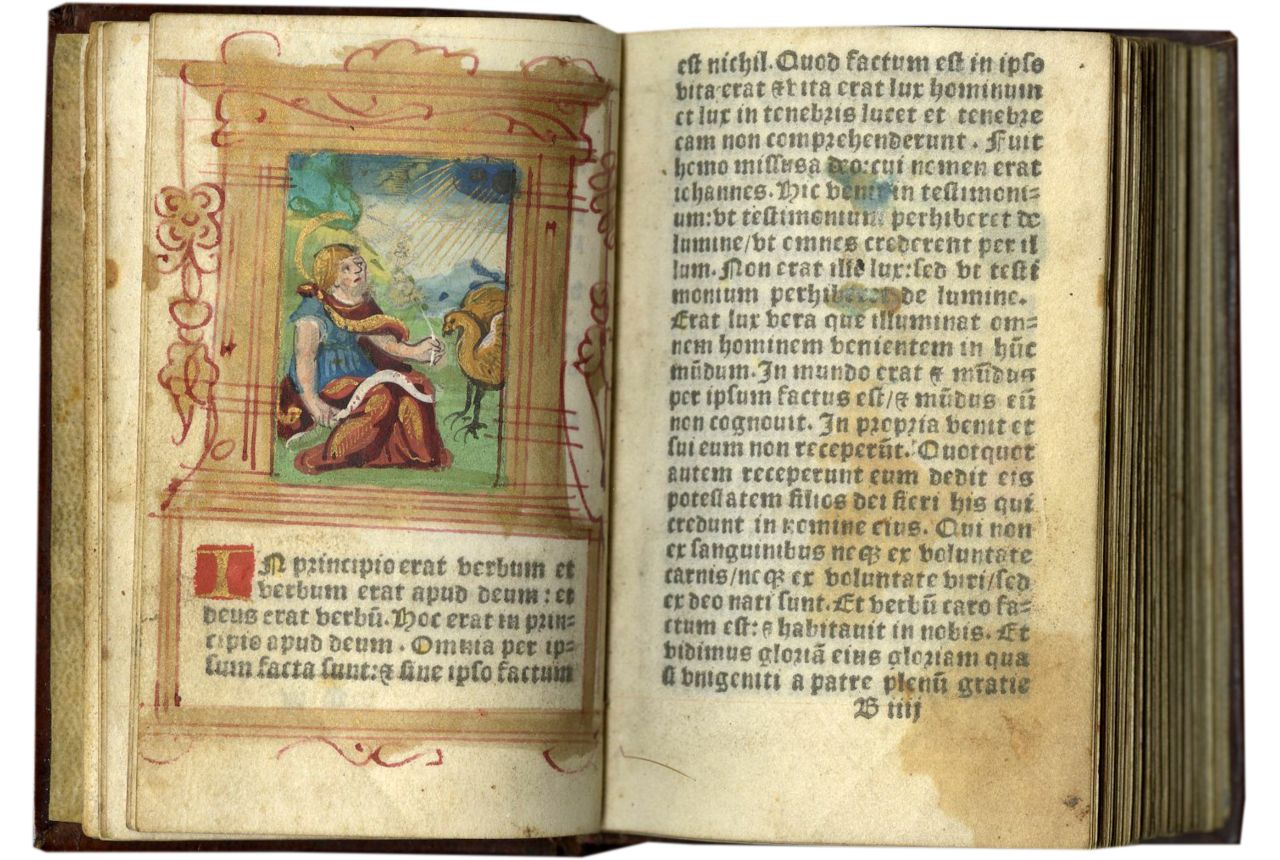 IN principio erat verbum et
verbum erat apud deum: et
deus erat verbū. Hoc erat in prin=
cipio apud deum. Omnia per ip=
sum facta sunt: & sine ipso factum
est nichil. Quod factum est in ipso
vita erat & vita erat lux hominum
et lux in tenebris lucet et tenebre
eam non comprehenderunt. Fuit
homo missus a deo: cui nomen erat
iohannes. Hic venit in testimoni=
um: vt testimonium perhiberet de
lumine/ vt omnes crederent per il
lum. Non erat ille lux: sed vt testi
monium perhiberet de lumine.
Erat lux vera que illuminat om=
nem hominem venientem in hūc
mūdum. In mundo erat & mūdus
per ipsum factus est/ & mūdus eū
non cognouit. In propria venit et
sui eum non receperūt. Quotquot
autem receperunt eum dedit eis
potestatem filios dei fieri his qui
credunt in nomine eius. Qui non
ex sanguinibus neqꝫ ex voluntate
carnis/ neqꝫ ex voluntate viri/ sed
ex deo nati sunt. Et verbū caro fa=
ctum est: & habitauit in nobis. Et
vidimus gloriā eius gloriam qua
si vnigeniti a patre plenū gratie
B iiij